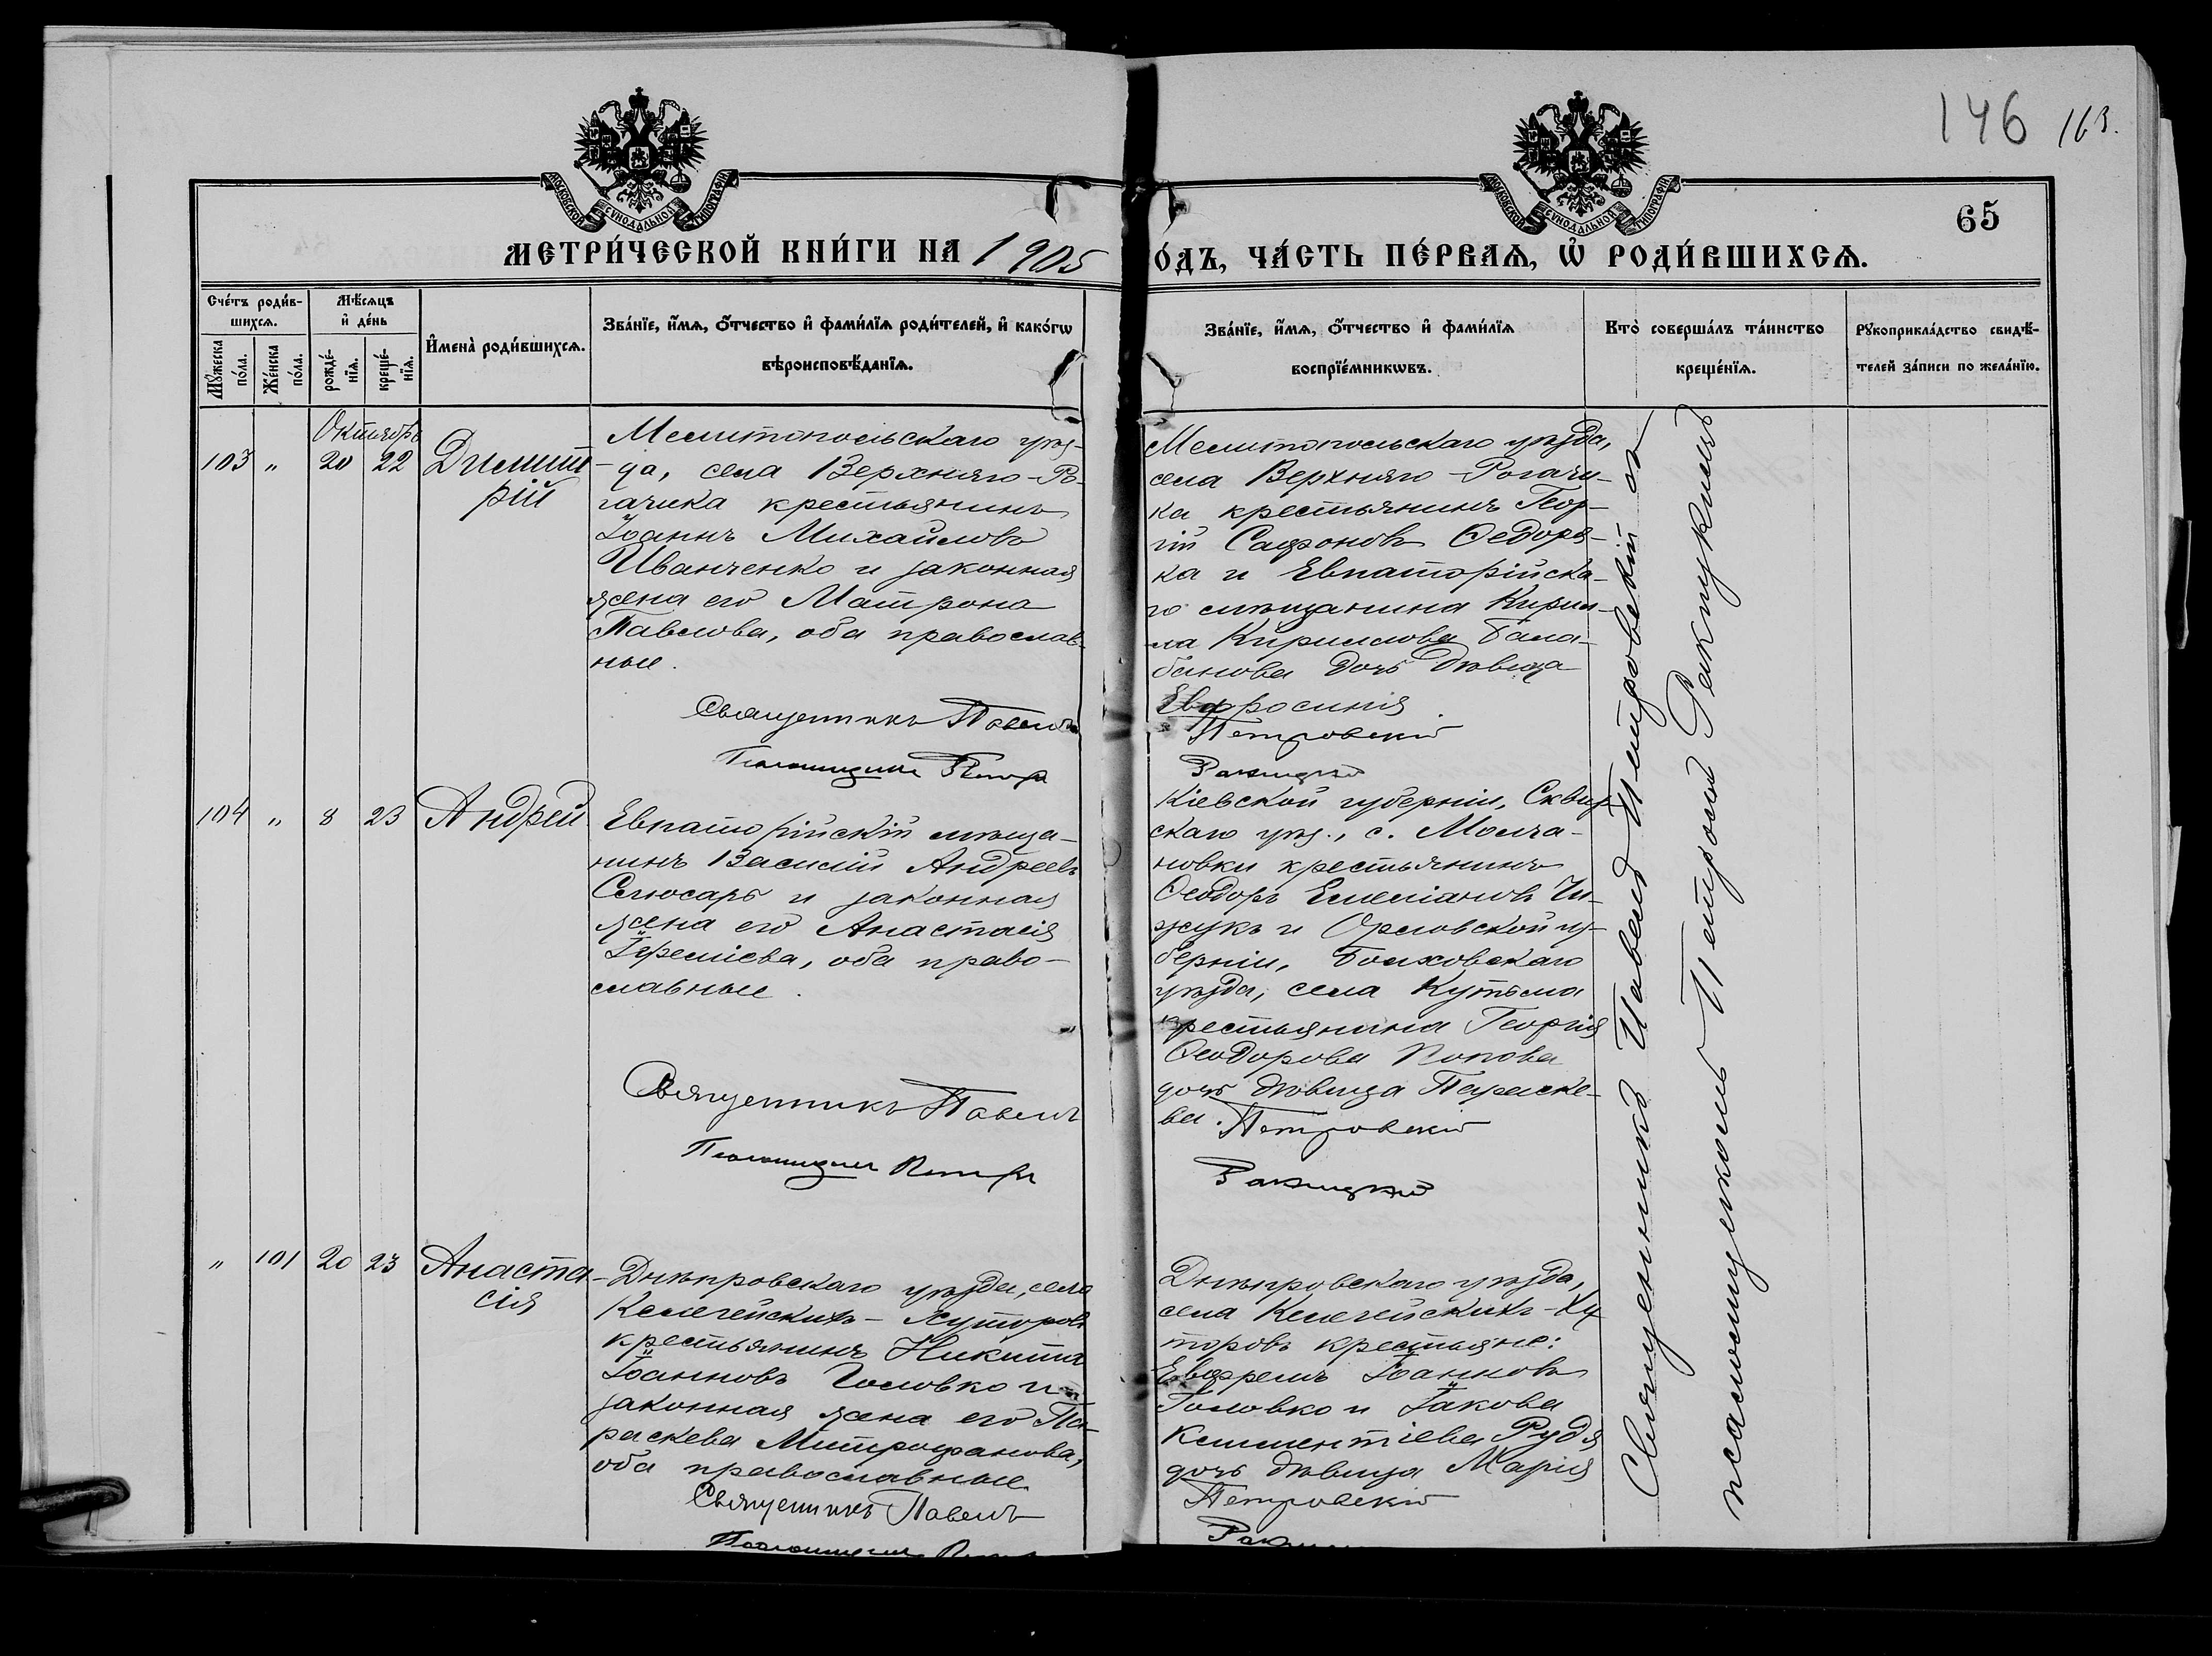 146 163.
МОСКОВСКОЙ СѴНОДАЛЬНОЙ ТИПОГРАФІИ
МОСКОВСКОЙ СѴНОДАЛЬНОЙ ТИПОГРАФІИ
65
МЕТРИ́ЧЕСКОЙ КНИ́ГИ НА 1905
О́ДЪ, ЧА́СТЬ ПЕ́РВАѦ, Ѡ҆ РОДИ́ВШИХСѦ.
Сче́тъ роди́в-
шихсѧ.
Мѹ́жеска
по́ла.
Же́нска
по́ла.
Мѣ́сѧцъ
и҆ де́нь
рожде́-
нїѧ.
креще́-
нїѧ.
И҆мена̀ роди́вшихсѧ.
Зва́нїе, и҆́мѧ, ѻ҆́тчество и҆ фами́лїѧ роди́телей, и҆ како́гѡ
вѣроисповѣ́данїѧ.
Зва́нїе, и҆́мѧ, ѻ҆́тчество и҆ фами́лїѧ
воспрїе́мникѡвъ.
Кто̀ соверша́лъ та́инство
креще́нїѧ.
Рѹкоприкла́дство свидѣ́-
телей за́писи по жела́нїю.
Октябрь
103 " 20 22 Димит
рій
Мелитопольскаго уѣз-
да, села Верхняго-Ро-
гачика крестьянинъ
Іоаннъ Михайловъ
Иванченко и законная
жена его Матрона
Павлова, оба православ-
ные.
Священникъ Павелъ
Псаломщикъ Петръ
Мелитопольскаго уѣзда,
села Верхняго-Рогачи-
ка крестьянинъ Геор-
гій Сафоновъ Ѳедоря-
ка и Евпаторійска-
го мѣщанина Кирил-
ла Кириллова Бала-
банова дочь дѣвица
Евфросинія
Петровскій
Ракицкій
104 " 8 23 Андрей
Евпаторійскій мѣща-
нинъ Василій Андреевъ
Слюсарь и законная
жена его Анастасія
Іереміева, оба право-
славные.
Священникъ Павелъ
Псаломщикъ Петръ
Кіевской губерніи, Сквир
скаго уѣз., с. Молча-
новки крестьянинъ
Ѳеодоръ Емеліановъ Чи-
жукъ и Орловской гу-
берніи, Болховскаго
уѣзда, села Кутьма
крестьянина Георгія
Ѳеодорова Попова
дочь дѣвица Параске-
ва.
Петровскій
Ракицкій
" 101 20 23 Анаста-
сія
Днѣпровскаго уѣзда, села
Келегейскихъ-Хуторовъ
крестьянинъ Никита
Іоанновъ Головко и
законная жена его Па-
раскева Митрофанова,
оба православные.
Священникъ Павелъ
Псаломщикъ
Днѣпровскаго уѣзда,
села Келегейскихъ-Ху
торовъ крестьяне:
Евфремъ Іоанновъ
Головко и Іакова
Климентіева Рудя
дочь дѣвица Марія
Петровскій
Священникъ Павелъ Петровскій съ
псаломщикомъ Петромъ Ракицкимъ